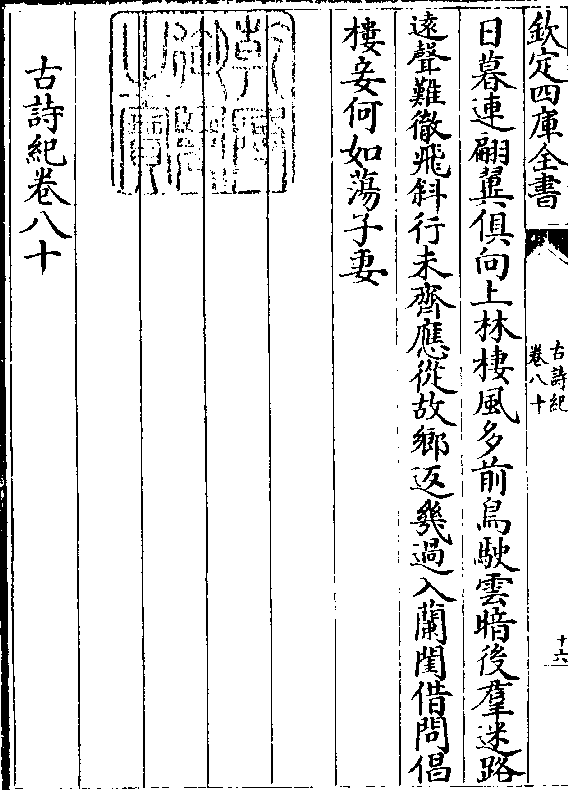 欽定四庫全書
古詩紀
卷八十
十六
日暮連翩翼俱向上林棲風多前鳥駛雲暗後羣迷路
遠聲難徹飛斜行未齊應從故鄉返幾過入蘭閨借問倡
樓妾何如蕩子妻
乾隆
御覽
之寶
古詩紀卷八十